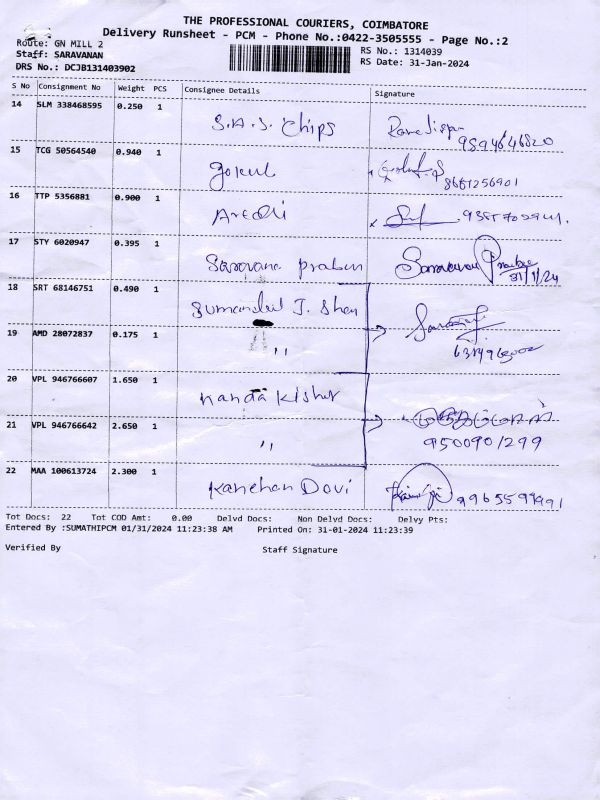 THE PROFESSIONAL COURIERS, COIMBATORE
Delivery Runsheet - PCM - Phone No.:0422-3505555 - Page No.:2
Route: GN MILL 2
RS No.: 1314039
Staff: SARAVANAN
RS Date: 31-Jan-2024
DRS No.: DCJB131403902
S No Consignment No Weight PCS Consignee Details Signature
14 SLM 338468595 0.250 1 S.A.S. Chips
15 TCG 50564540 0.940 1 Gokul 8667256901
16 TTP 5356881 0.900 1
17 STY 6020947 0.395 1 Saravana praben 31/1/24
18 SRT 68146751 0.490 1 J. Shan
19 AMD 28072837 0.175 1 ,,
20 VPL 946766607 1.650 1 Nanda Kishor
21 VPL 946766642 2.650 1 ,, 9500901299
22 MAA 100613724 2.300 1 Kanchan Devi
Tot Docs: 22 Tot COD Amt: 0.00 Delvd Docs: Non Delvd Docs: Delvy Pts:
Entered By :SUMATHIPCM 01/31/2024 11:23:38 AM Printed On: 31-01-2024 11:23:39
Verified By Staff Signature